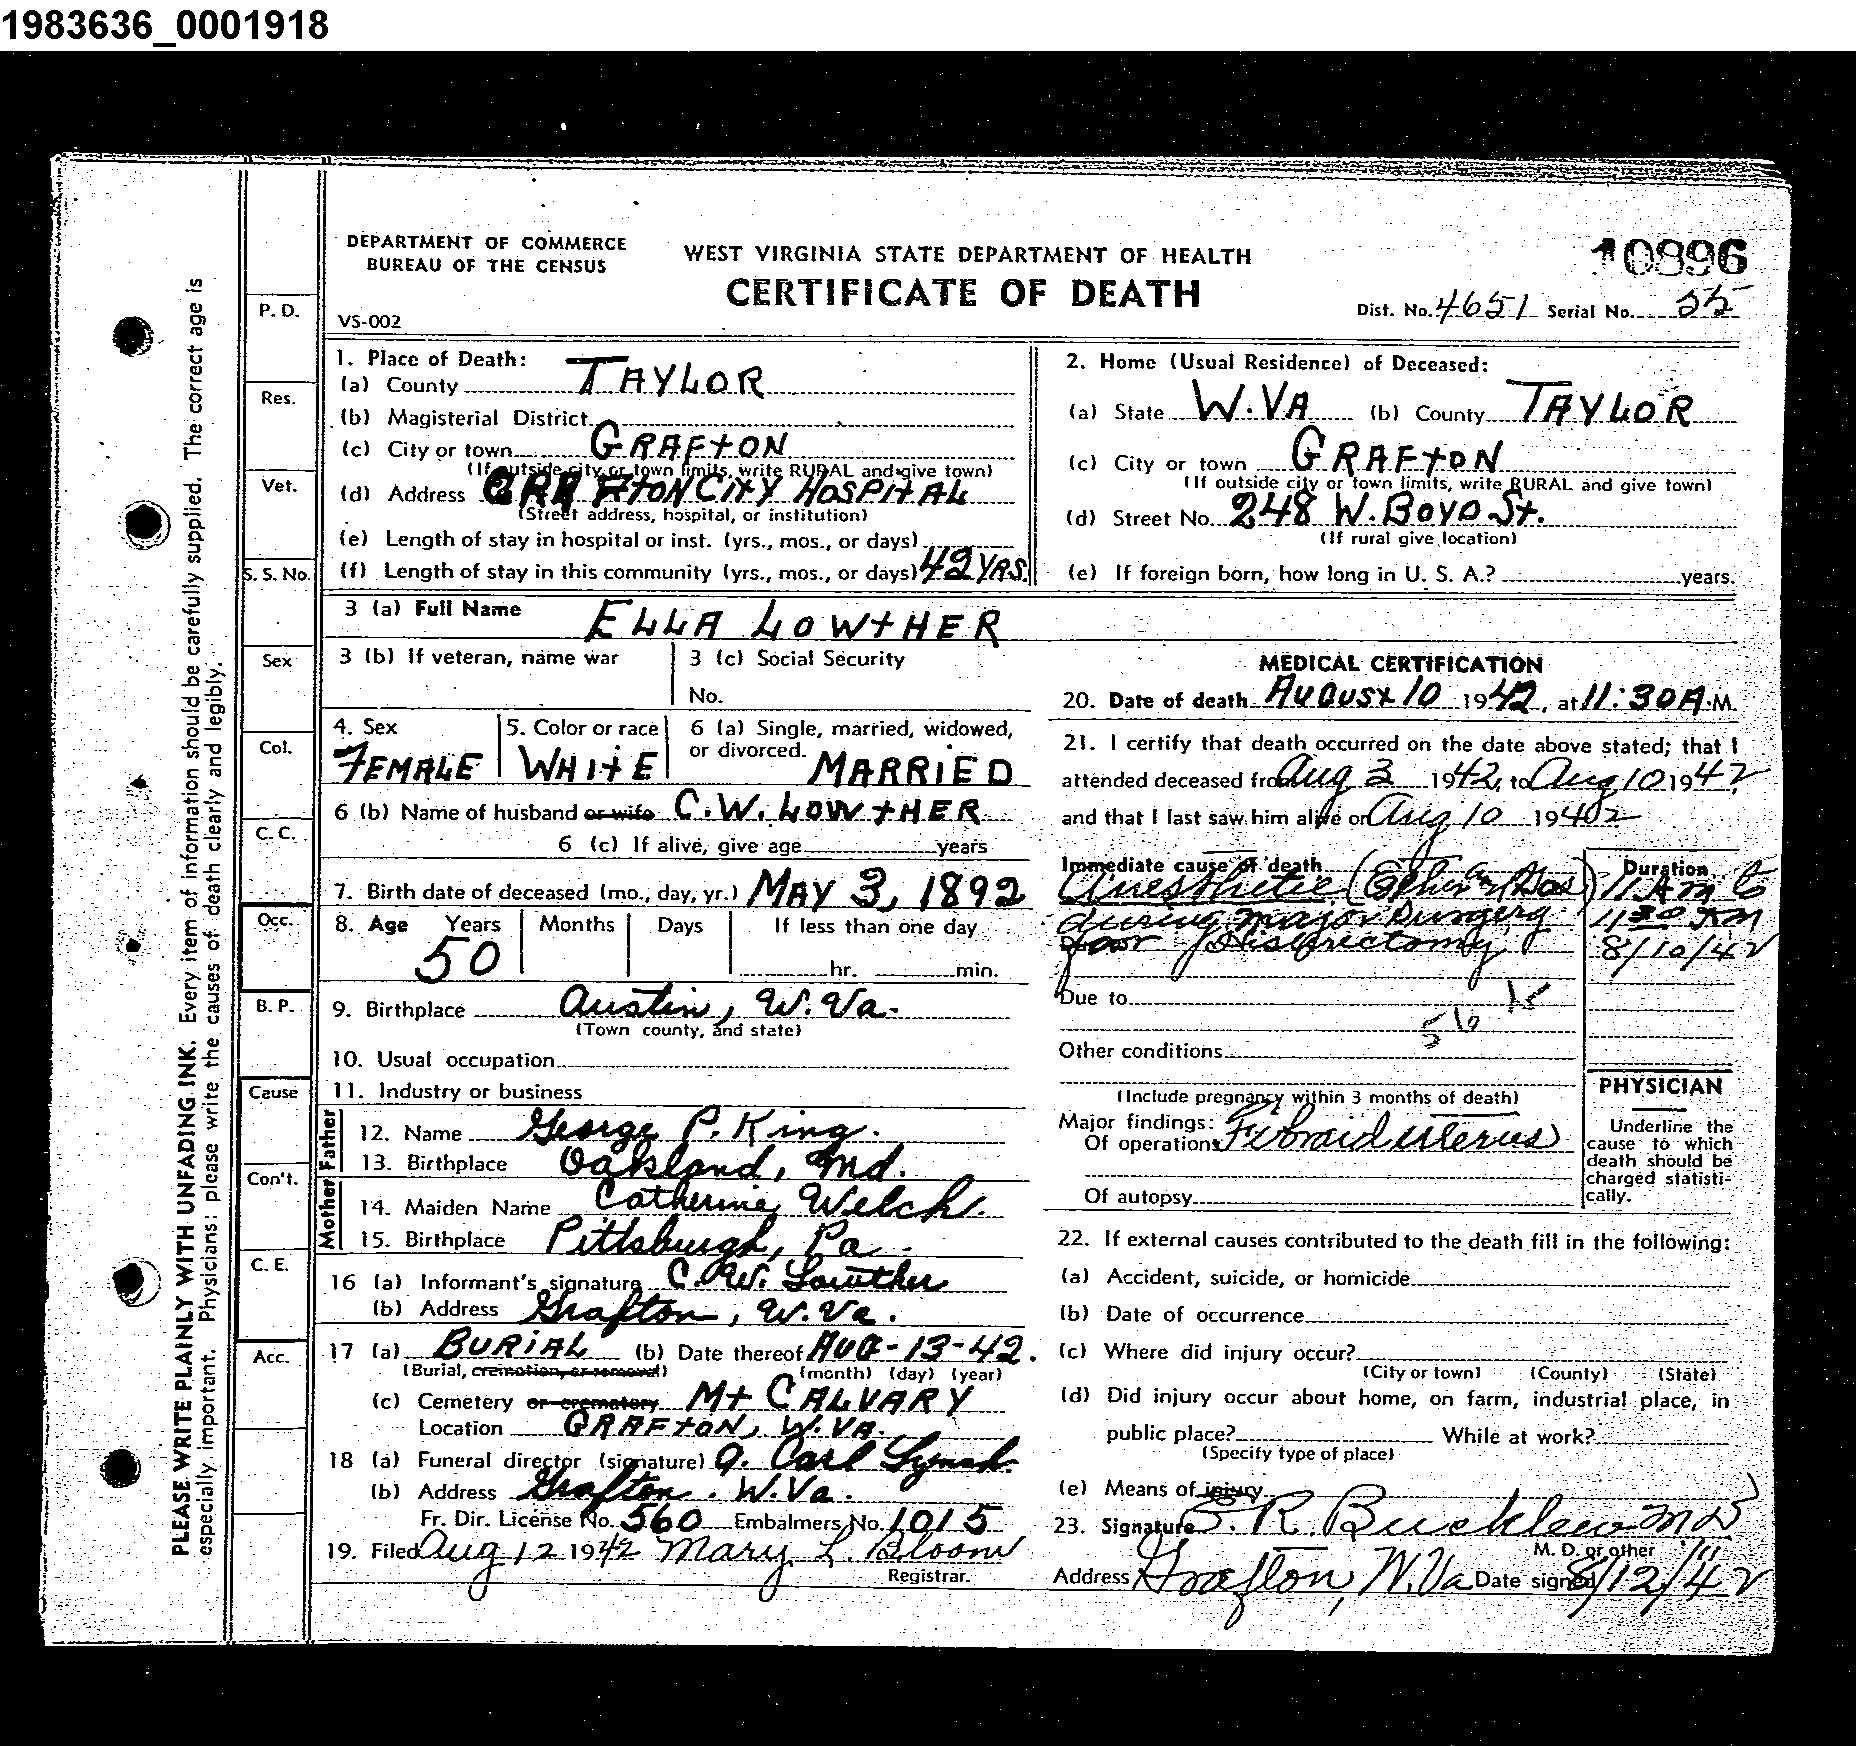 1983636_0001918
DEPARTMENT OF COMMERCE
BUREAU OF THE CENSUS
WEST VIRGINIA STATE DEPARTMENT OF HEALTH
CERTIFICATE OF DEATH
10896
VS-002
Dist. No. 4651 Serial No. 55
PLEASE WRITE PLAINLY WITH UNFADING INK. Every item of information should be carefully supplied. The correct age is
especially important. Physicians: please write the causes of death clearly and legibly.
P. D.
Res.
Vet.
S. S. No.
Sex
Col.
C. C.
Occ.
B. P.
Cause
Con't.
C. E.
Acc.
1. Place of Death:
(a) County TAYLOR
(b) Magisterial District
(c) City or town GRAFTON
(If outside city or town limits, write RURAL and give town)
(d) Address GRAFTON CITY HOSPITAL
(Street address, hospital, or institution)
(e) Length of stay in hospital or inst. (yrs., mos., or days)
(f) Length of stay in this community (yrs., mos., or days) 42 YRS.
2. Home (Usual Residence) of Deceased:
(a) State W. VA (b) County TAYLOR
(c) City or town GRAFTON
(If outside city or town limits, write RURAL and give town)
(d) Street No. 248 W. BOYD St.
(If rural give location)
(e) If foreign born, how long in U. S. A.? years.
3 (a) Full Name ELLA LOWTHER
3 (b) If veteran, name war
3 (c) Social Security
No.
4. Sex
FEMALE
5. Color or race
WHITE
6 (a) Single, married, widowed,
or divorced. MARRIED
6 (b) Name of husband or wife C. W. LOWTHER
6 (c) If alive, give age years
7. Birth date of deceased (mo., day, yr.) MAY 3, 1892
8. Age Years Months Days If less than one day
50 hr. min.
9. Birthplace Austin, W. Va.
(Town county, and state)
10. Usual occupation
11. Industry or business
Father
12. Name George P. King.
13. Birthplace Oakland, Md.
Mother
14. Maiden Name Catherine Welch.
15. Birthplace Pittsburgh, Pa.
16 (a) Informant's signature C. W. Lowther
(b) Address Grafton, W. Va.
17 (a) BURIAL (b) Date thereof AUG-13-42.
(Burial, cremation, or removal) (month) (day) (year)
(c) Cemetery or crematory Mt CALVARY
Location GRAFTON, W. VA.
18 (a) Funeral director (signature) Carl
(b) Address Grafton, W. Va.
Fr. Dir. License No. 560 Embalmers No. 1015
19. Filed Aug 12 1942 Mary L. Bloom
Registrar.
MEDICAL CERTIFICATION
20. Date of death AUGUST 10 1942, at 11:30 A.M.
21. I certify that death occurred on the date above stated; that I
attended deceased from Aug 3 1942, to Aug 10 1942
and that I last saw him alive on Aug 10 1942
Immediate cause of death
Anesthetic (Ether Gas)
during major Surgery
for
Duration
11 AM to
11 30 AM
8/10/42
Due to
56
Other conditions
(Include pregnancy within 3 months of death)
Major findings:
Of operations Fibroid uterus
Of autopsy
PHYSICIAN
Underline the
cause to which
death should be
charged statisti-
cally.
22. If external causes contributed to the death fill in the following:
(a) Accident, suicide, or homicide
(b) Date of occurrence
(c) Where did injury occur?
(City or town) (County) (State)
(d) Did injury occur about home, on farm, industrial place, in
public place? While at work?
(Specify type of place)
(e) Means of injury
23. Signature R. Bucklew MD
M. D. or other
Address Grafton, W. Va Date signed 8/12/42